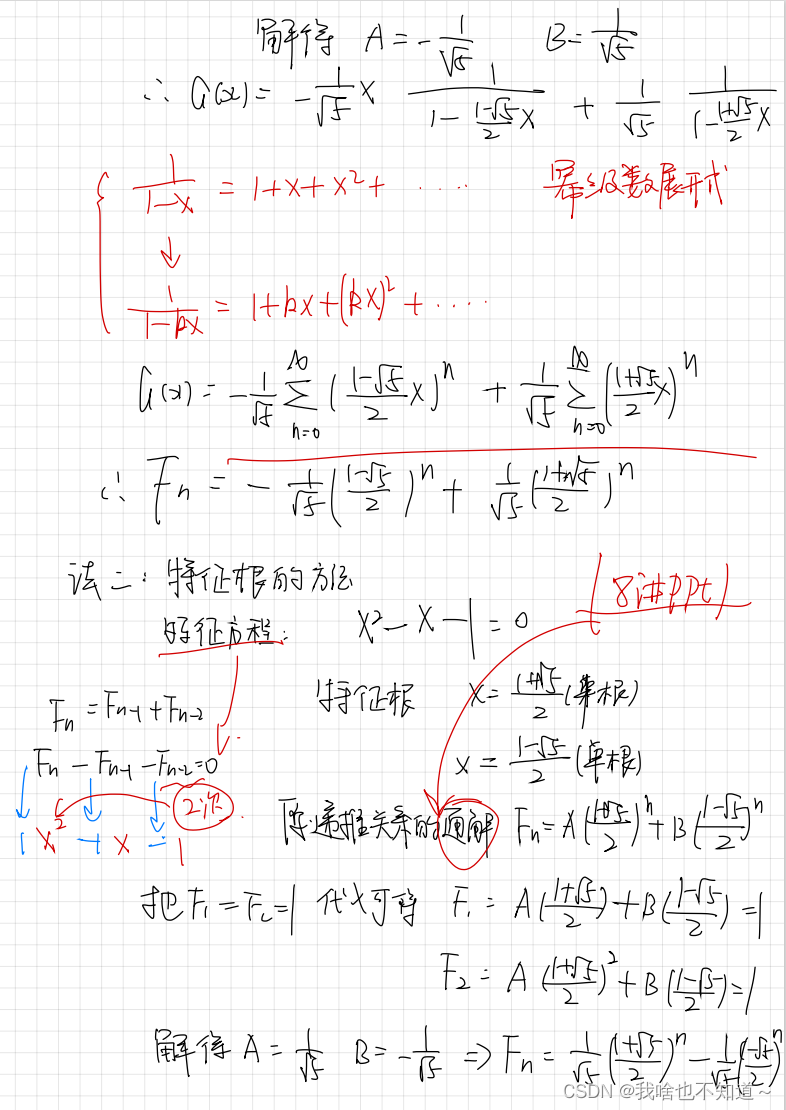 解得 A = -1/√5 B = 1/√5
∴ G(x) = -1/√5 × 1/(1 - (1-√5)/2 x) + 1/√5 1/(1 - (1+√5)/2 x)
1/(1-x) = 1+x+x²+ ····· 幂级数展开式
↓
1/(1-kx) = 1+kx+(kx)²+ ····
G(x) = -1/√5 ∑_{n=0}^{∞} ((1-√5)/2 x)^n + 1/√5 ∑_{n=0}^{∞} ((1+√5)/2 x)^n
∴ Fn = -1/√5 ((1-√5)/2)^n + 1/√5 ((1+√5)/2)^n
法二: 特征根的方法
8讲PPt
特征方程: x² - x - 1 = 0
特征根 x = (1+√5)/2 (单根)
Fn = Fn-1 + Fn-2
x = (1-√5)/2 (单根)
Fn - Fn-1 - Fn-2 = 0
2次
1 x² -1 x -1
递推关系的通解 Fn = A((1+√5)/2)^n + B((1-√5)/2)^n
把 F1 = F2 = 1 代入可得 F1 = A((1+√5)/2) + B((1-√5)/2) = 1
F2 = A((1+√5)/2)² + B((1-√5)/2) = 1
解得 A = 1/√5 B = -1/√5 => Fn = 1/√5 ((1+√5)/2)^n - 1/√5 ((1-√5)/2)^n
CSDN @我啥也不知道~